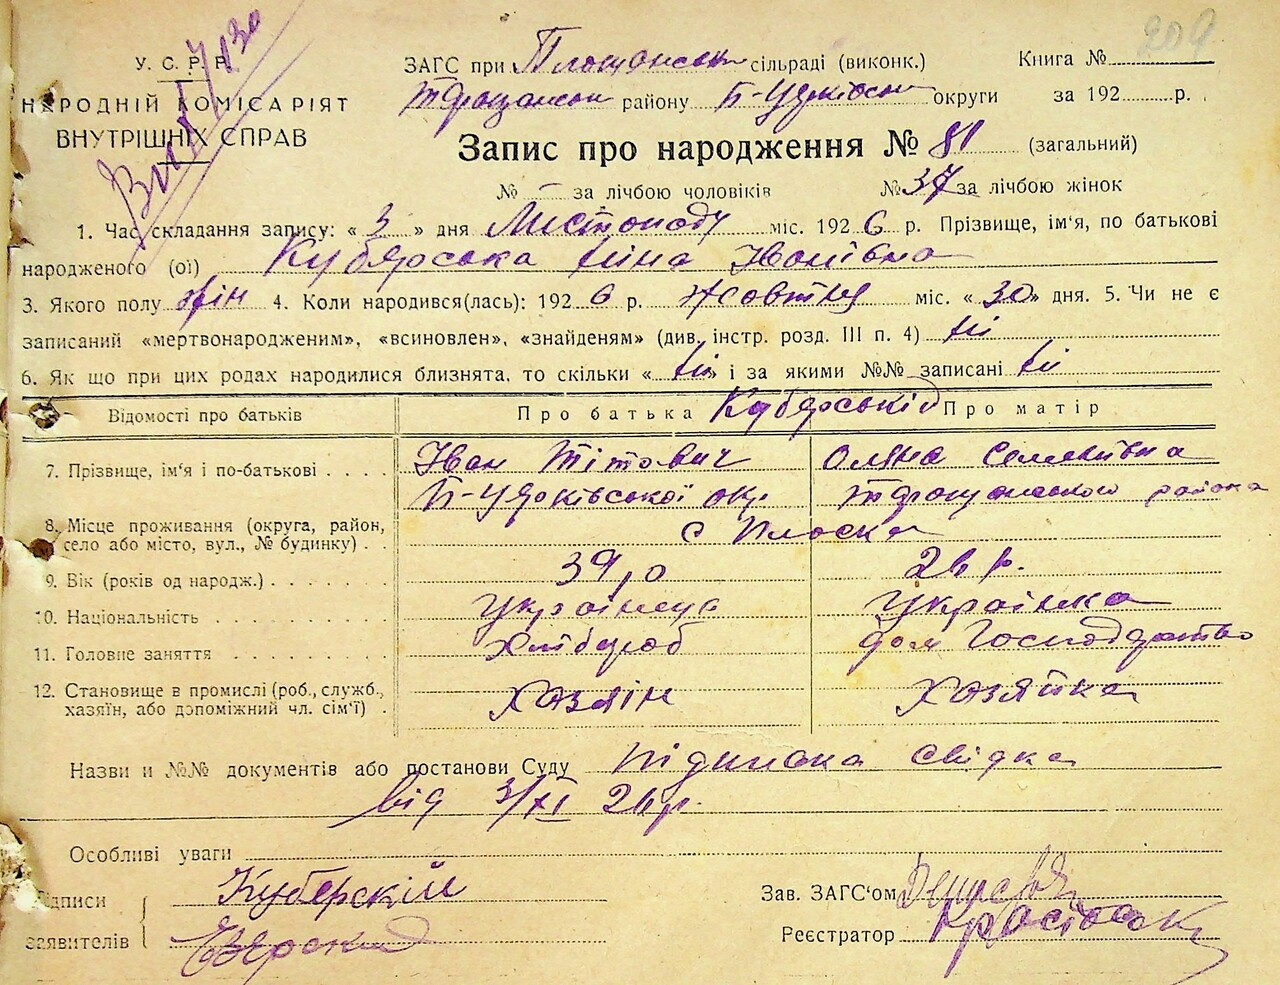 209
У.С.Р.Р.
НАРОДНІЙ КОМІСАРІЯТ
ВНУТРІШНІХ СПРАВ
ЗАГС при Площанськ сільраді (виконк.) Книга №
району Б-Церківськ округи за 192 р.
Запис про народження № 81 (загальний)
№ – за лічбою чоловіків № 37 за лічбою жінок
1. Час складання запису: « 3 » дня Листопаду міс. 1926 р. Прізвище, ім'я, по батькові
народженого (ої) Кубярська Ніна Іванівна
3. Якого полу жін 4. Коли народився(лась): 1926 р. Жовтня міс. «30» дня. 5. Чи не є
записаний «мертвонародженим», «всиновлен», «знайденям» (див. інстр. розд. III п. 4) Ні
6. Як що при цих родах народилися близнята, то скільки « Ні » і за якими №№ записані Ні
Відомості про батьків Про батька Кубярський Про матір
7. Прізвище, ім'я і по-батькові Іван Тітович Оляна Семенівна
Б-Церківської окр. района
8. Місце проживання (округа, район,
село або місто, вул., № будинку) с Плоска
9. Вік (років од народж.) 39 ро 26 р.
10. Національність Українець Українка
11. Головне заняття Хлібороб дом Господарство
12. Становище в промислі (роб., служб.,
хазяїн, або допоміжний чл. сім'ї) Хазяін Хазяйка
Назви и №№ документів або постанови Суду підписка свідка
від 3/XI 26 р.
Особливі уваги
Підписи Куберскій
заявителів
Зав. ЗАГС'ом
Реєстратор